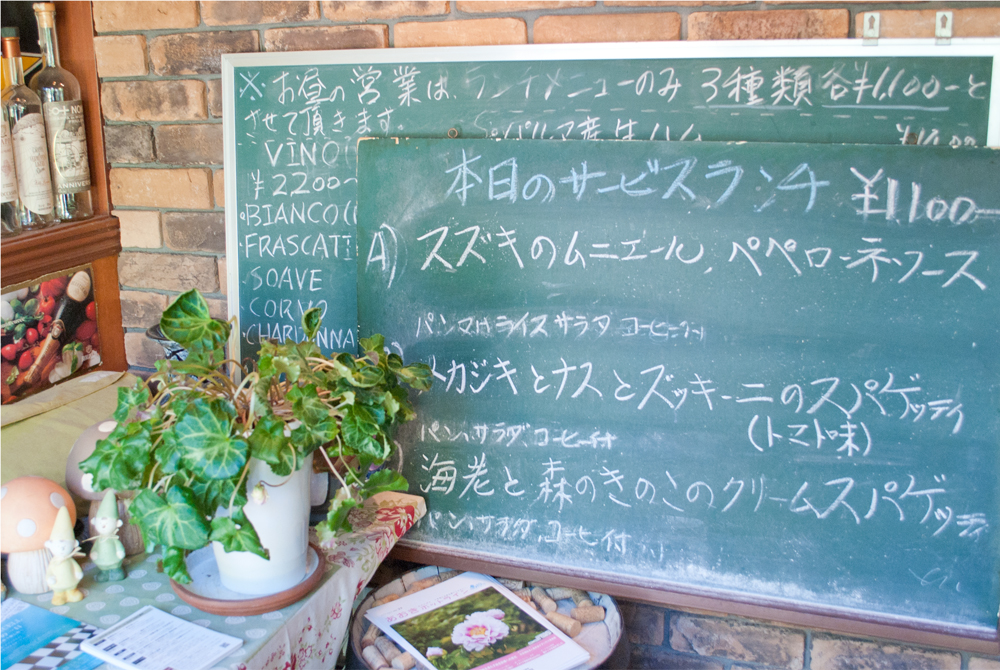 ※お昼の営業は、ランチメニューのみ 3種類 各¥1,100-と
させて頂きます。
パルマ産生ハム
VINO
¥2200-
BIANCO
FRASCATI
SOAVE
CORVO
CHARDONNA
本日のサービスランチ ¥1100-
A) スズキのムニエール, ペペローネソース
パン又はライス サラダ コーヒー付
メカジキとナスとズッキーニのスパゲッティ
(トマト味)
パン、サラダ コーヒー付
海老と森のきのこのクリームスパゲッティ
パン、サラダ、コーヒー付